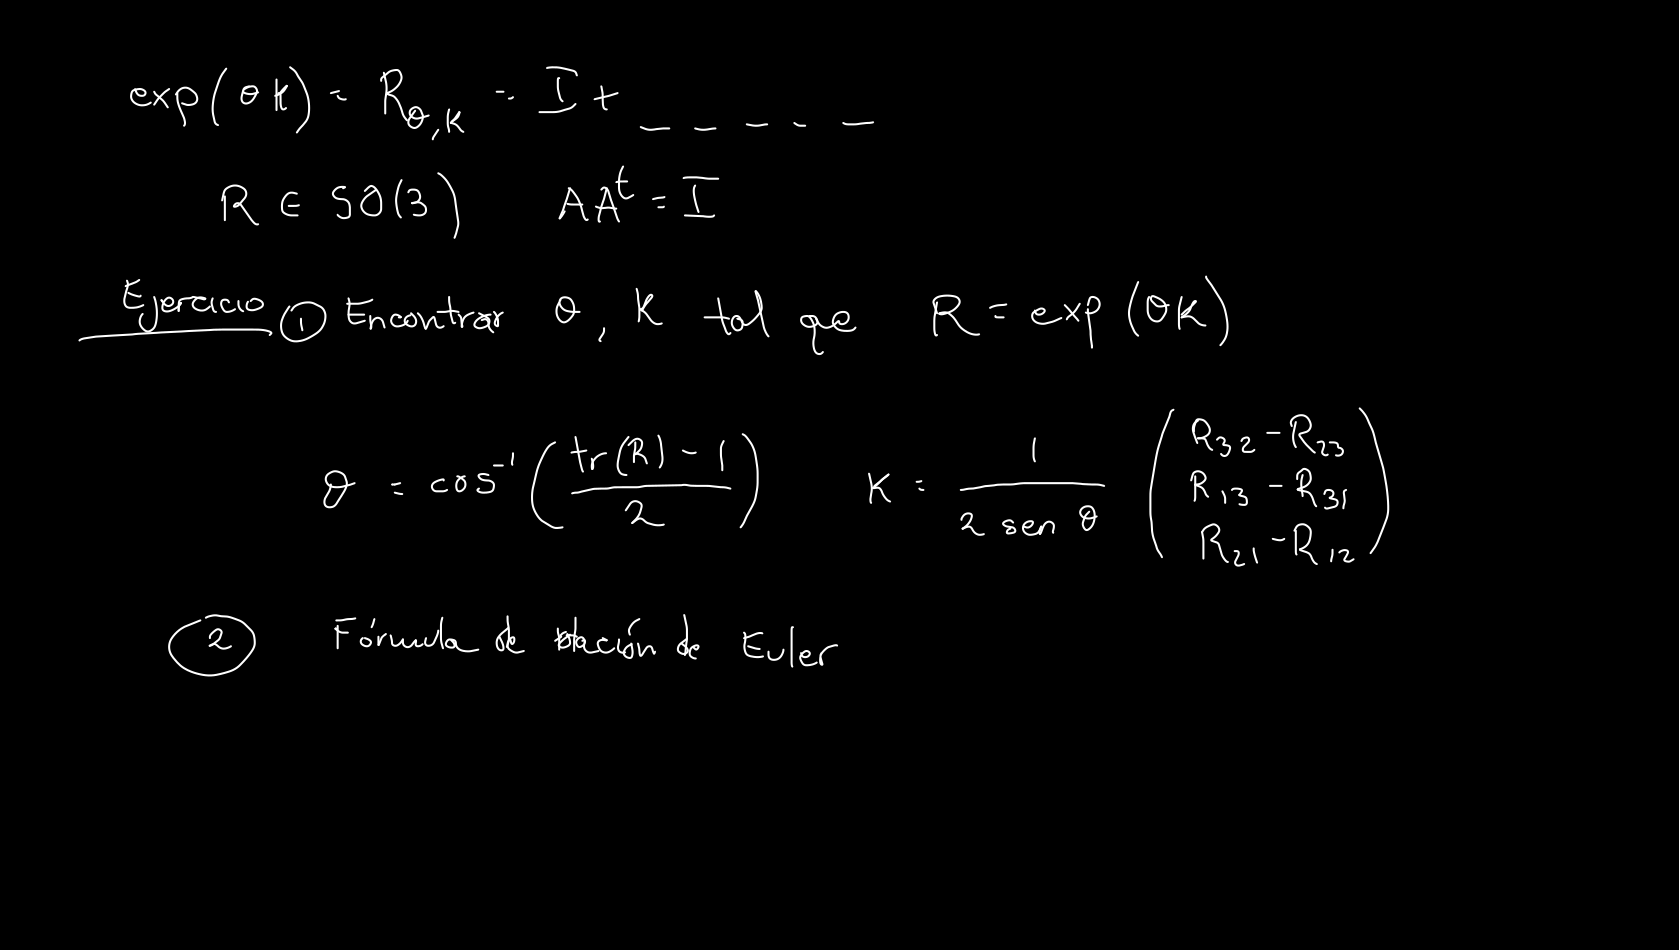 exp(θK) = R_θ,K = I + _ _ _ _ _
R ∈ SO(3) AA^t = I
Ejercicio ① Encontrar θ, K tal que R = exp(θK)
θ = cos^-1 ( (tr(R) - 1) / 2 ) K = 1 / (2 sen θ) ( R_32 - R_23
R_13 - R_31
R_21 - R_12 )
② Fórmula de rotación de Euler